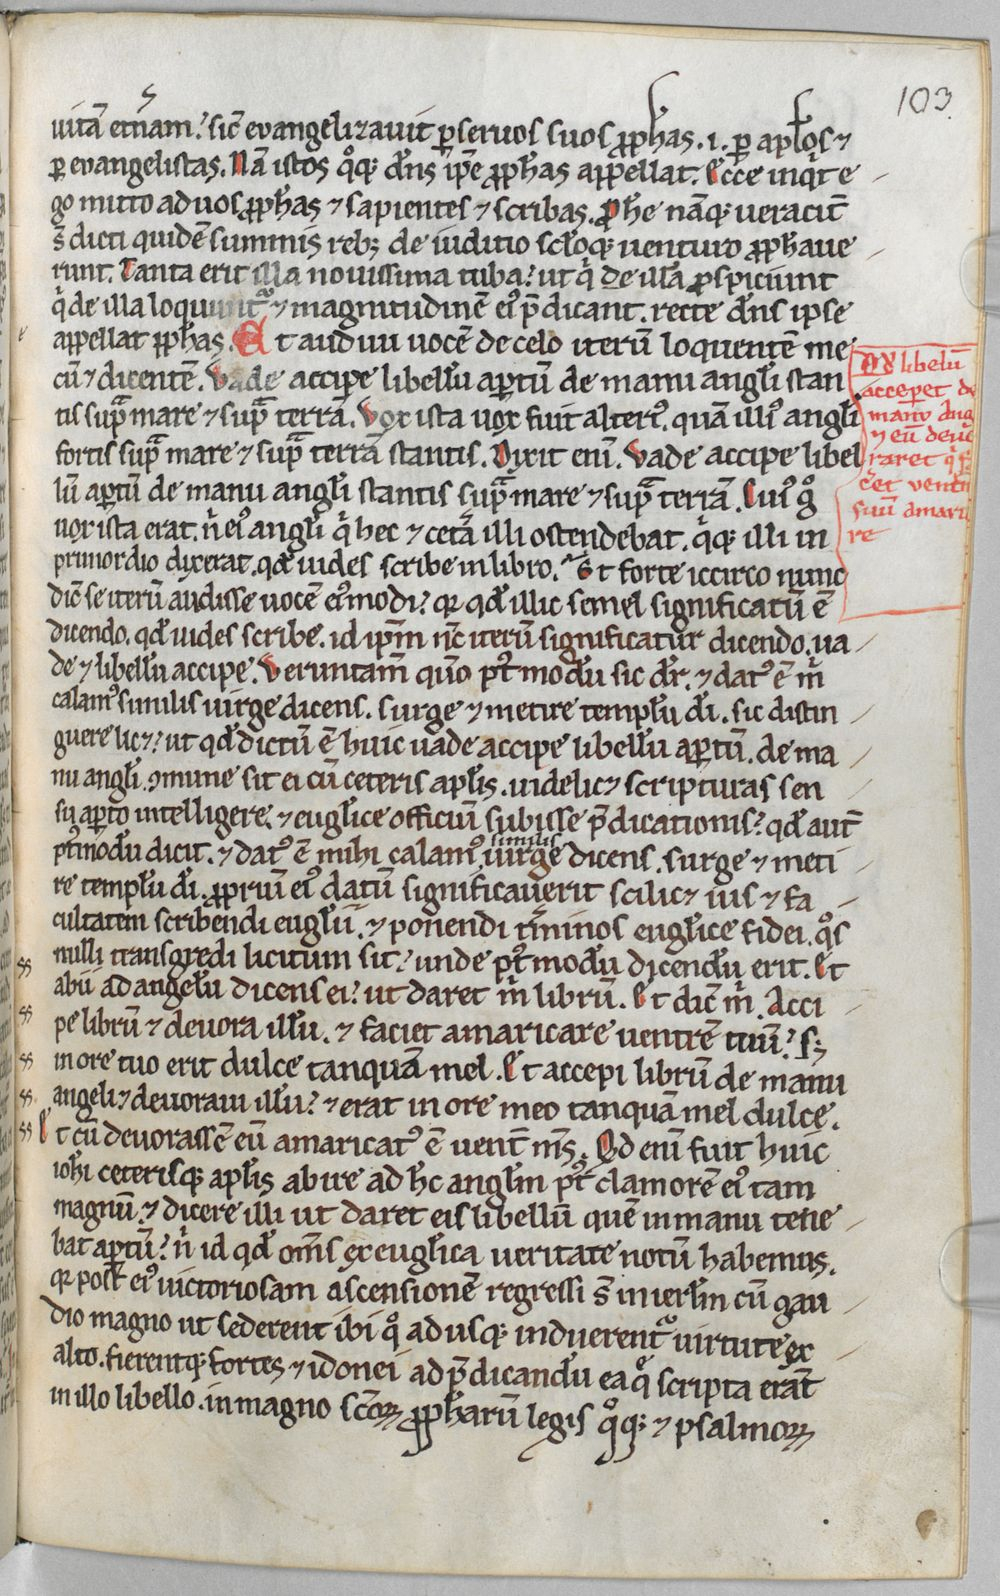 103.
uitā et̄nam? sic̄ evangelizauit ꝑ seruos suos ꝓph̄as .i. ꝑ apl̄os ⁊
ꝑ evangelistas. Nā istos qͦꝙ dn̄s ip̄e ꝓph̄as appellat. Ecce inqͥt e
go mitto ad uos ꝓph̄as ⁊ sapientes ⁊ scribas. Ꝓphe nāꝙ veracit̄
s̄ dicti quidē summis reb; de iuditio scl̄oꝙ venturo ꝓphaue
runt. Tanta erit illa nouissima tuba? ut qͥ de illa ꝓspiciunt
qͥ de illa loquunt᷑ ⁊ magnitudinē eiꝰ p̄dicant. recte dn̄s ipse
appellat ꝓph̄as. Et audiui uocē de celo iterū loquentē me
cū ⁊ dicentē. Vade accipe libellū aꝑtū de manu angl̄i stan
tis supͣ mare ⁊ supͣ terrā. Vox ista uox fuit alterꝰ. quā illiꝰ angl̄i
fortis supͣ mare ⁊ supͣ terrā stantis. Dixit enī. Vade accipe libel
lū aꝑtū de manu angl̄i stantis supͣ mare ⁊ supͣ terrā. Cuiꝰ gͦ
uox ista erat. n̄ eiꝰ angl̄i qͥ hec ⁊ cet̄a illi ostendebat. qͥꝙ illi in
primordio dixerat. qd̄ uides scribe in libro. Et forte iccirco nunc
dic̄ se iterū audisse uocē eiꝰmodi? qr qd̄ illic semel significatū ē
dicendo. qd̄ uides scribe. id ipm̄ nc̄ iterū significatur dicendo. ua
de ⁊ libellū accipe. Veruntam̄ quō pꝰt modū sic dr̄. ⁊ datꝰ ē m̄
calamꝰ similis uirge dicens. surge ⁊ metire templū di̅. sic distin
guere lic⁊? ut qd̄ dictū ē huic uade accipe libellū aꝑtū. de ma
nu angl̄i. ꝯmune sit ei cū ceteris apl̄is. uidelic⁊ scripturas sen
su aꝑto intelligere. ⁊ eugl̄ice officiū subisse p̄dicationis? qd̄ aut̄
pꝰtmodū dicit. ⁊ datꝰ ē mihi calamꝰ similis uirge dicens. surge ⁊ meti
re templū di̅. ꝓpriū eiꝰ datū significauerit scilic⁊ ius ⁊ fa
cultatem scribendi eugl̄ii. ⁊ ponendi t̄minos eugl̄ice fidei. qͦs
nulli transgredi licitum sit? unde pꝰtmodū dicendū erit. Et
abii ad angelū dicens ei? ut daret m̄ librū. Et dic̄ m̄. Acci
pe librū ⁊ deuora illū. ⁊ faciet amaricare ventrē tuū? s;
in ore tuo erit dulce tanquā mel. Et accepi librū de manu
angeli ⁊ deuoraui illū? ⁊ erat in ore meo tanquā mel dulce.
Et cū deuorassē eū amaricatꝰ ē vent̄ ms̄. Qd enī fuit huic
ioh̄i ceterisꝙ apl̄is abire ad hc̄ angl̄m pꝰt clamorē eiꝰ tam
magnū. ⁊ dicere illi ut daret eis libellū quē in manu tene
bat aꝑtū? n̄ id qd̄ om̄s ex eugl̄ica veritate notū habemus.
qr post eiꝰ uictoriosam ascensionē regressi s̄ in ierl̄m cū gau
dio magno ut sederent ibi qͦ adusꝙ induerent᷑ uirtute ex
alto. fierentꝙ fortes ⁊ idonei ad p̄dicandū ea q̄ scripta erāt
in illo libello. in magno sc̄oꝝ ꝓph̄arū legis qͦꝙ ⁊ psalmoꝝ
libelū
acceperet de
manu Ang
⁊ eū deuo
raret
et ventr
suū amari
re